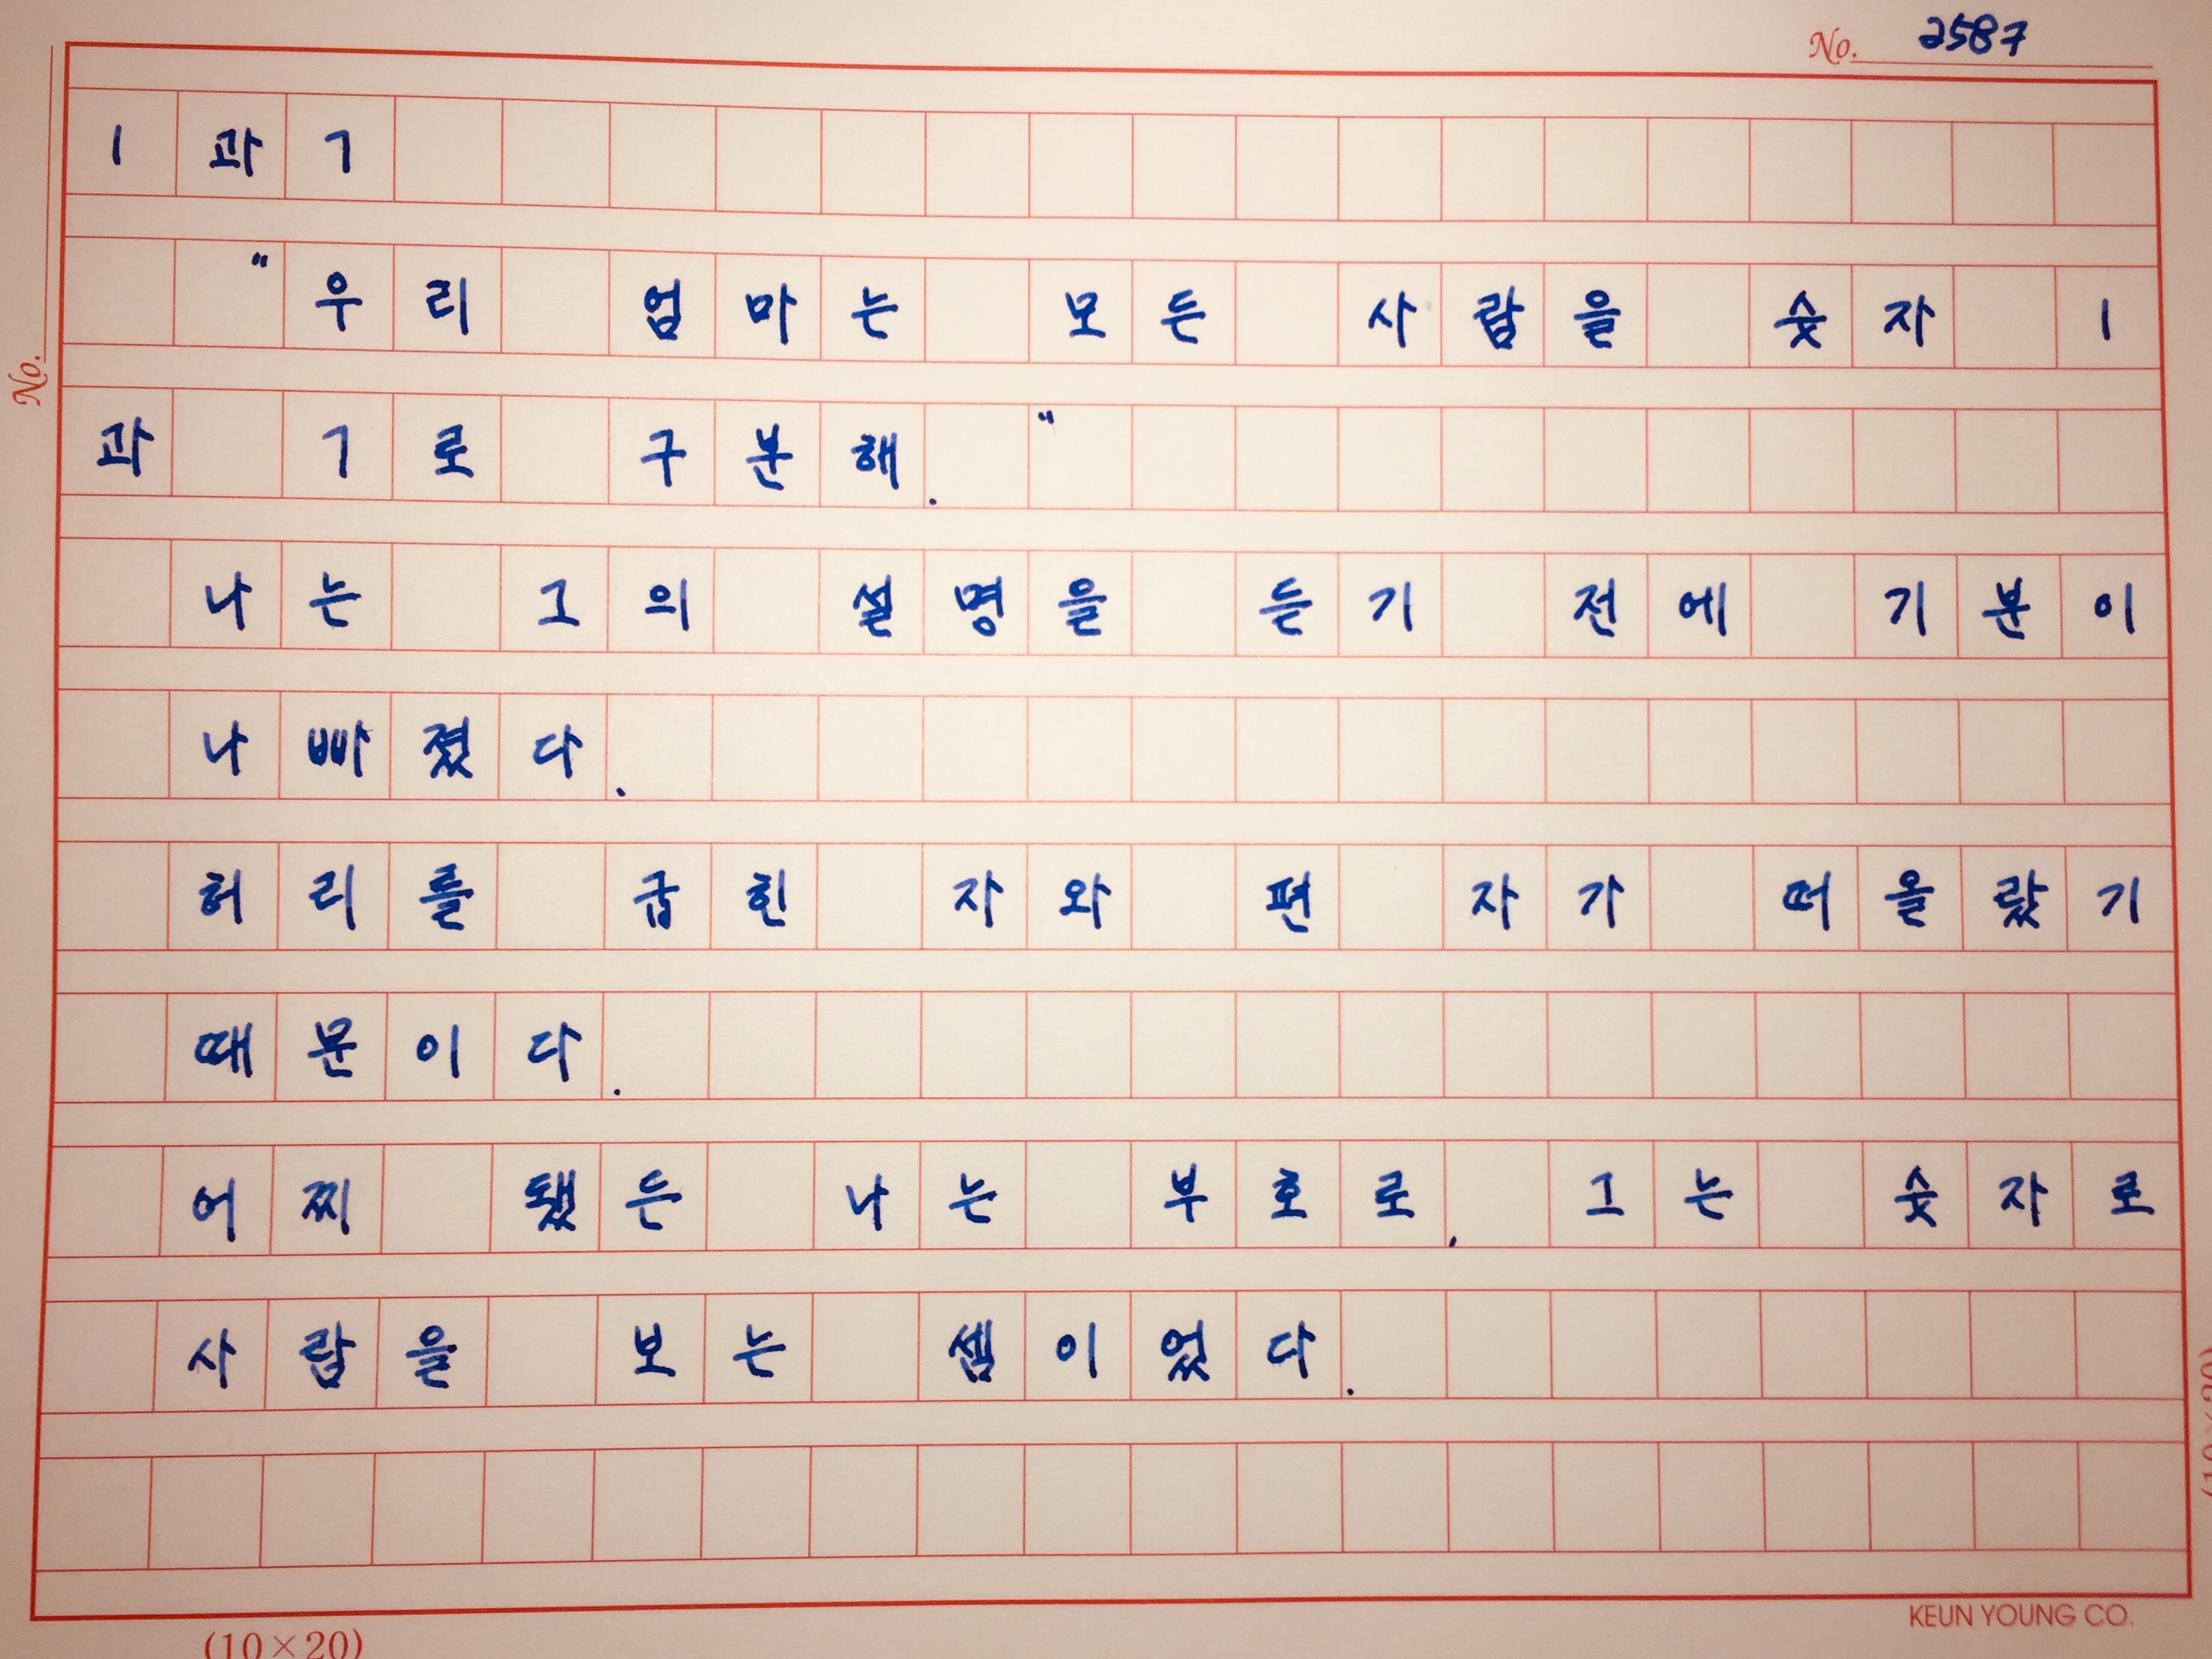 No. 2587
1과 7
"우리 엄마는 모든 사람을 숫자 1
과 7로 구분해."
나는 그의 설명을 듣기 전에 기분이
나빠졌다.
허리를 굽힌 자와 편 자가 떠올랐기
때문이다.
어찌 됐든 나는 부호로, 그는 숫자로
사람을 보는 셈이었다.
No.
KEUN YOUNG CO.
(10×20)
(10×20)